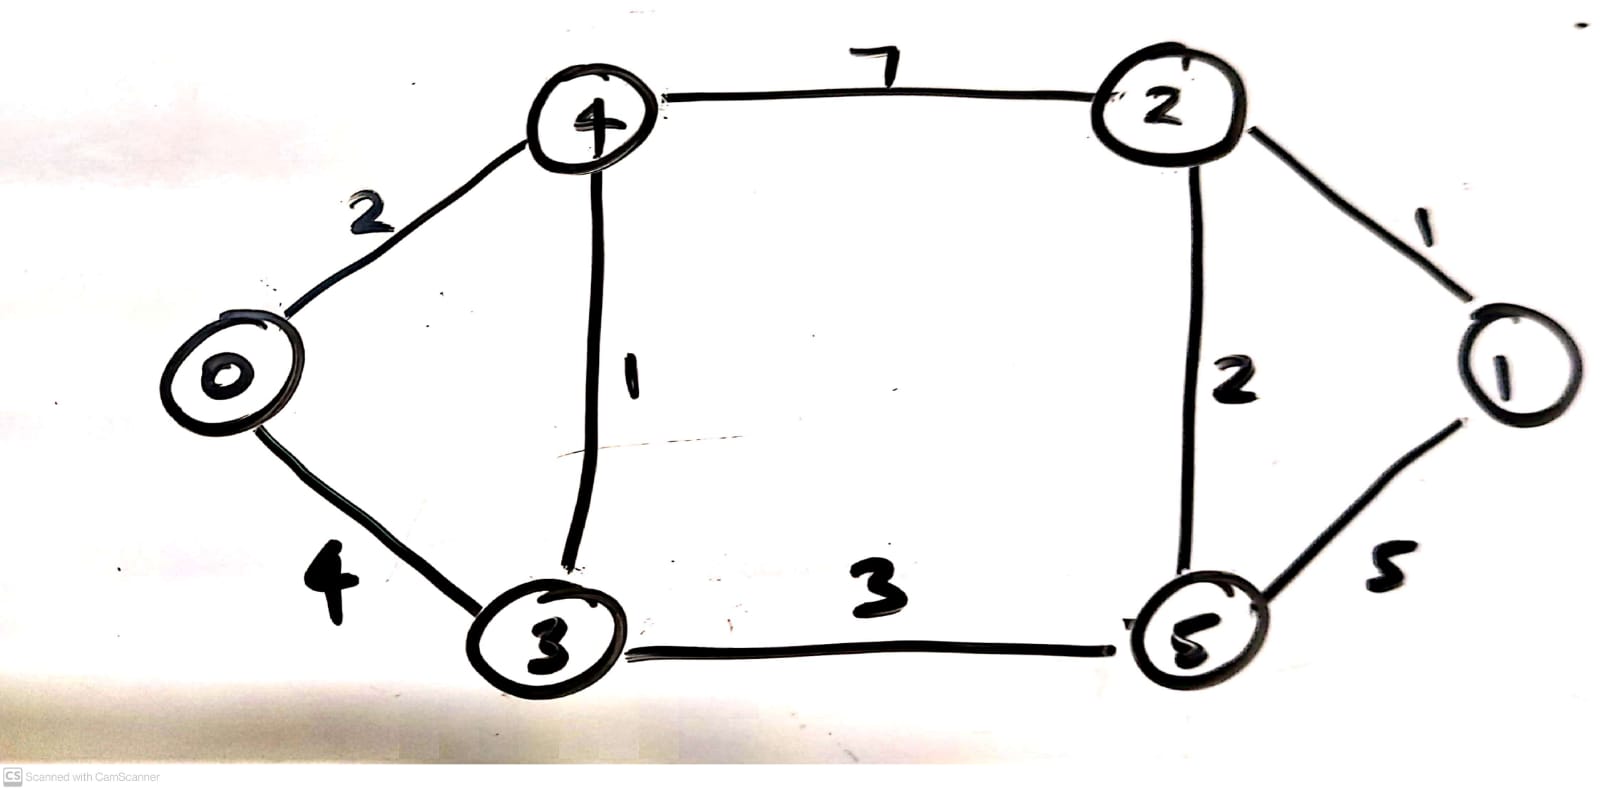 7
4
2
2
1
0
1
2
1
4
3
5
3
5
CS Scanned with CamScanner